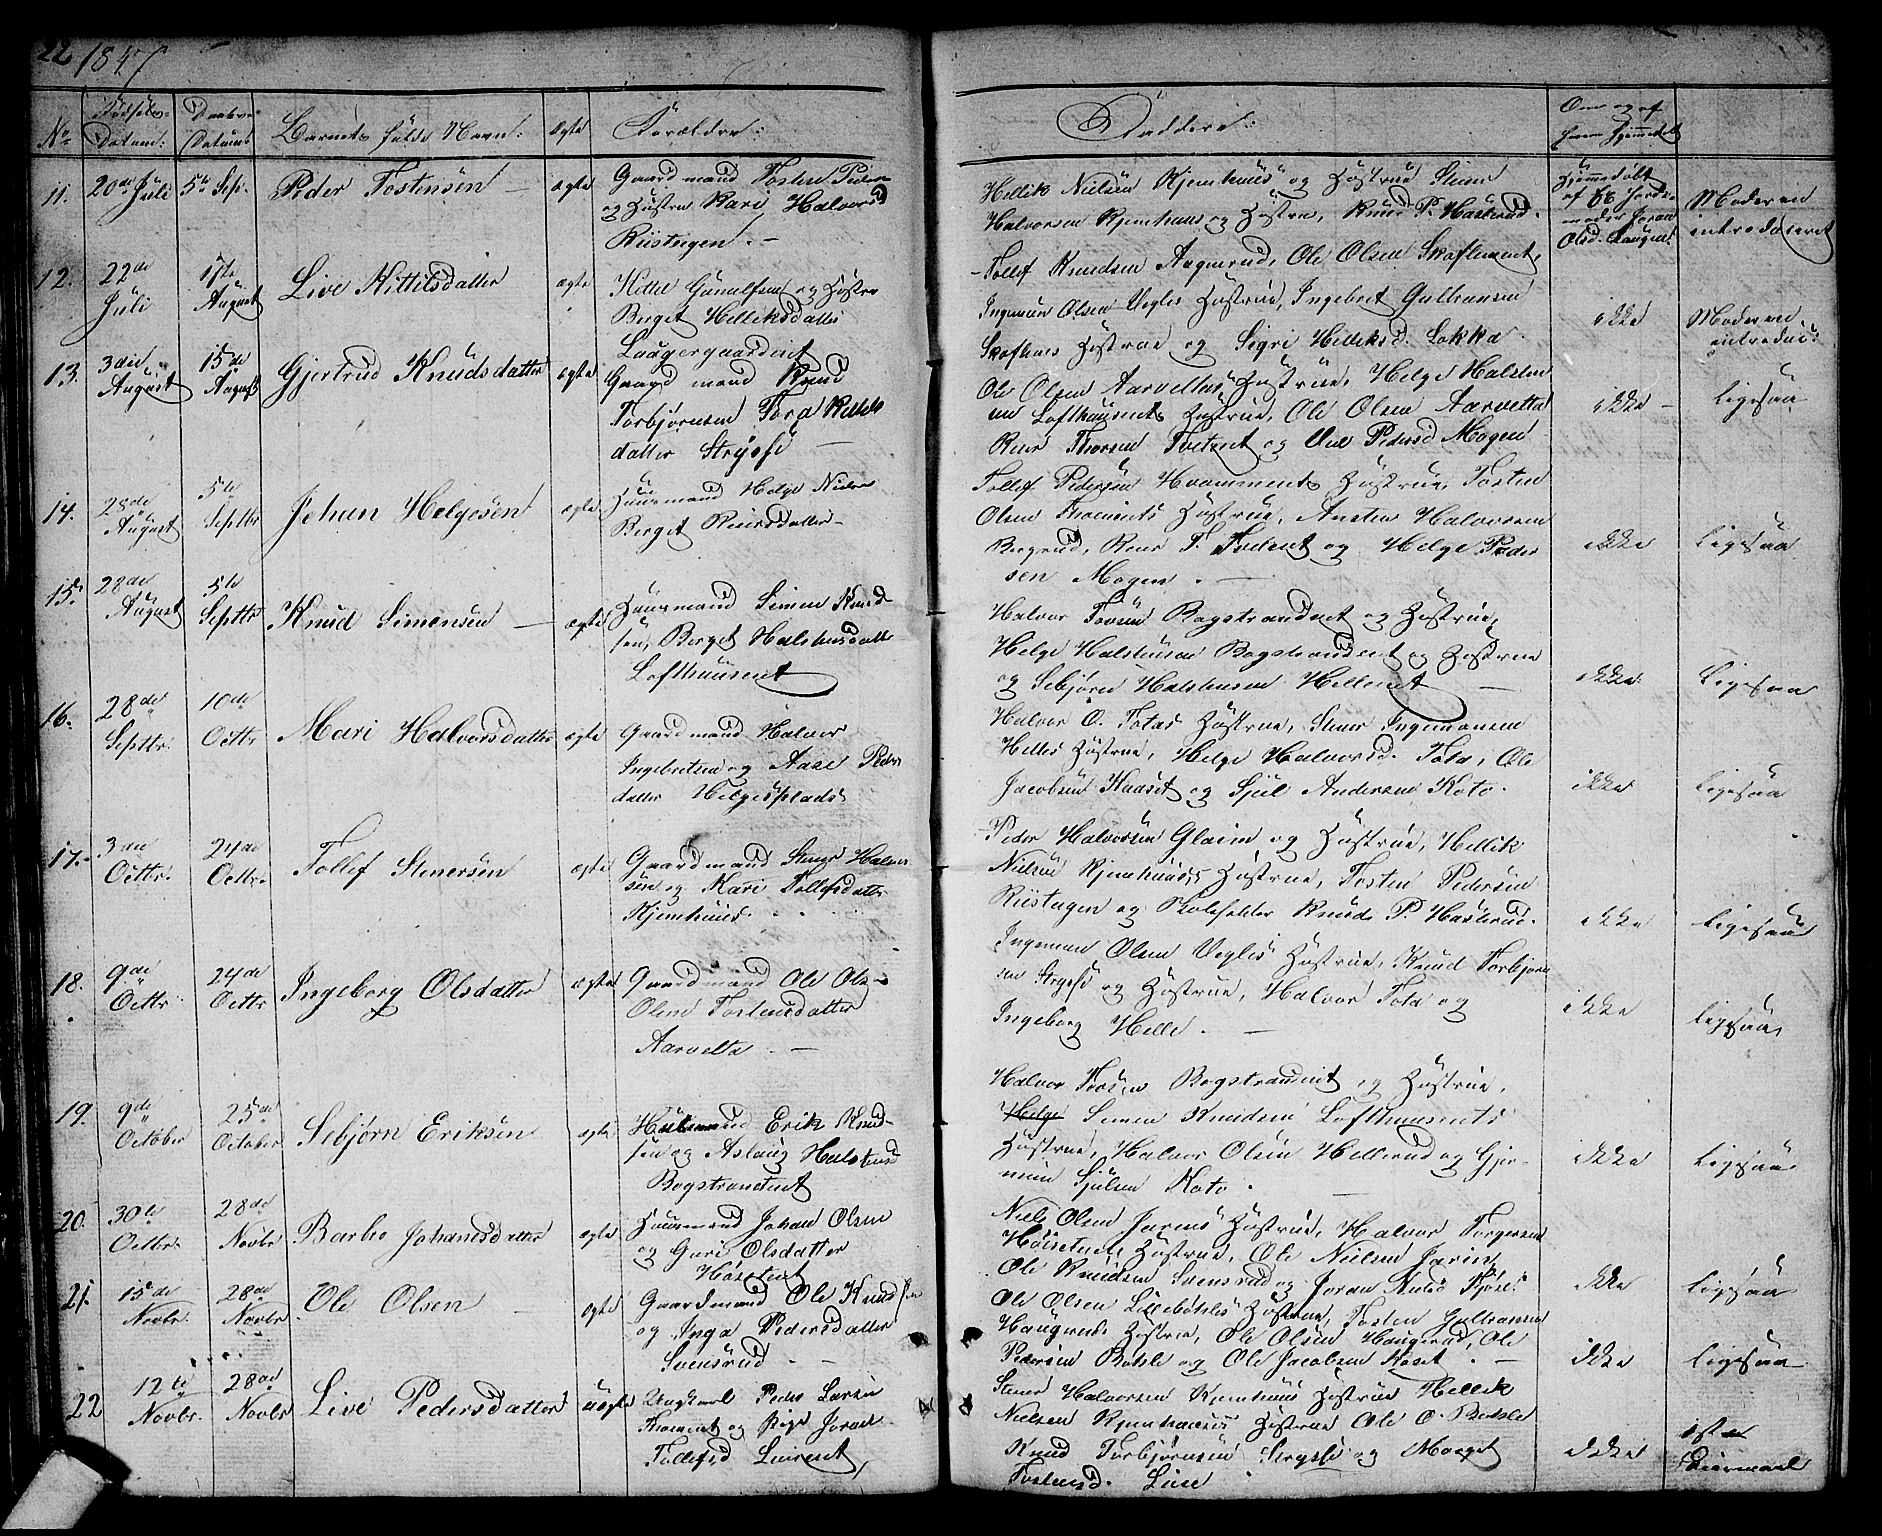 22 1847
No
Fødsels-
Datum:
Daabs-
Datum:
Barnets fulde Navn:
ægte
Forældre:
Faddere:
Om og af
hvem hjemmedøbt
11.
20de Juli
5te Sep.
Peder Tostensen
ægte
Gaardmand Tosten Peders
og Hustru Kari Halvorsd
Riistugen.
Hellik Nielsen Kjemhuus og Hustrue, Stener
Halvorsen Kjemhuus og Hustru, Knud P. Haslerud.
Hjemmedøbt
af Jorde-
moder Joran
Olsd. Laugen
Moderen
introduceret
12.
22de
Juli
17te
August
Live Kittilsdatter
ægte
Kittel Gunulfsen og Hustru
Berget Helliksdatter
Laugergaardenet
Tollef Knudsen Aagmerud, Ole Olsen Skoflement,
Ingemun Olsen Vegles Hustrue, Ingebret Gulbransen
Skoflies Hustrue og Sigri Helliksd. Lokka
ikke
Moderen
introduc:
13.
3die
August
15de
August
Gjertrud Knudsdatter
ægte
Gaard mand Knud
Torbjørnsen Tora Kittels
datter Strysse
Ole Olsen Aarvelta's Hustrue, Helge Halsten
sen Lofthuusents Hustrue, Ole Olsen Aarvelta
Reier Thorsen Tvetenet og Live Pedersd Mogen
ikke
ligesaa
14.
28de
August
5te
Septbr
Johan Helgesen
ægte
Huusmand Helge Nielsen
Berget Reiersdatter
Tollef Pedersen Hvamments Hustrue, Tosten
Olsen Thoments Hustrue, Austen Halvorsen
Bergrud, Reier T. Tvetenet og Helge Peder
sen Mogen.
ikke
ligesaa
15.
28de
August
5te
Septbr
Knud Simensen
ægte
Huusmand Simen Knud
sen, Berget Halstensdatter
Lofthuusenet
Halvor Tovsen Bogstrandnet og Hustrue,
Helge Halstensen Bogstrandenet og Hustrue
og Sebjørn Halstensen Hellenet
ikke
ligesaa
16.
28de
Septbr.
10de
Octbr
Mari Halvorsdatter
ægte
Gaardmand Halvor
Ingebretsen og Aase Peders
datter Helgesplads
Halvor O. Totas Hustrue, Stener Ingemunsen
Helles Hustrue, Helge Halvorsd. Tota, Ole
Jacobsen Haaset og Sjul Andersen Koto.
ikke
ligesaa
17.
3die
Octbr.
24de
Octbr.
Tollef Stenersen
ægte
Gaardmand Stener Halvor
sen og Kari Tollefsdatter
Kjemhuus.
Peder Halvorsen Glaim og Hustrue, Hellik
Nielsen Kjemhuus's Hustrue, Tosten Pedersen
Riistugen og Skoleholder Knud P. Haslerud.
ikke
ligesaa
18.
9de
Octbr.
24de
Octbr
Ingeborg Olsdatter
ægte
Gaardmand Ole Ols-
Olene Tostensdatter
Aarvelta
Ingeman Olsen Vegles Hustrue, Knud Torbjørn
sen Strysse og Hustrue, Halvor Tota og
Ingeborg Helle.
ikke
ligesaa
19.
9de
October
25de
October
Sebjørn Eriksen
ægte
Huusmand Erik Knud-
sen og Aslaug Halstensd
Bogstrandenet
Halvor Tovsen Bogstrandenet og Hustrue,
Helge Simen Knudsen Lofthuusents
Hustrue, Halvor Olsen Hellerud og Gjer-
mun Sjulsen Koto.
ikke
ligesaa
20.
30te
Octbr.
28de
Novbr
Barbo Johansdatter
ægte
Huusmand Johan Olsen
og Guri Olsdatter
Høisetenet
Niels Olsen Jorens Hustrue, Halvor Torgersen
Høisetnets Hustrue, Ole Nielsen Joren,
Ole Knudsen Svensrud og Joran Nielsd Fjøse.
ikke
ligesaa
21.
15de
Novbr.
28de
Novbr.
Ole Olsen
ægte
Gaardmand Ole Knudsen
og Inga Pedersdatter
Svensrud
Ole Olsen Lillebøtles Hustrue, Tosten Gulbransen
Haugeruds Hustrue, Ole Olsen Haugerud, Ole
Pedersen Botile og Ole Jacobsen Haaset.
ikke
ligesaa
22
12te
Novbr.
28de
Novbr
Live Pedersdatter
uægte
Ungkarl Peder Larsen
Thomet og Pige Joran
Tollefsd Livrenet
Stener Halvorsen Kjemhuus Hustrue Hellik
Nielsen Kjemhuus's Hustrue Ole O. Botile
Knud Torbjørnsen Strysse og Marget
Tostensd. Lise
ikke
1ste
Leiermaal